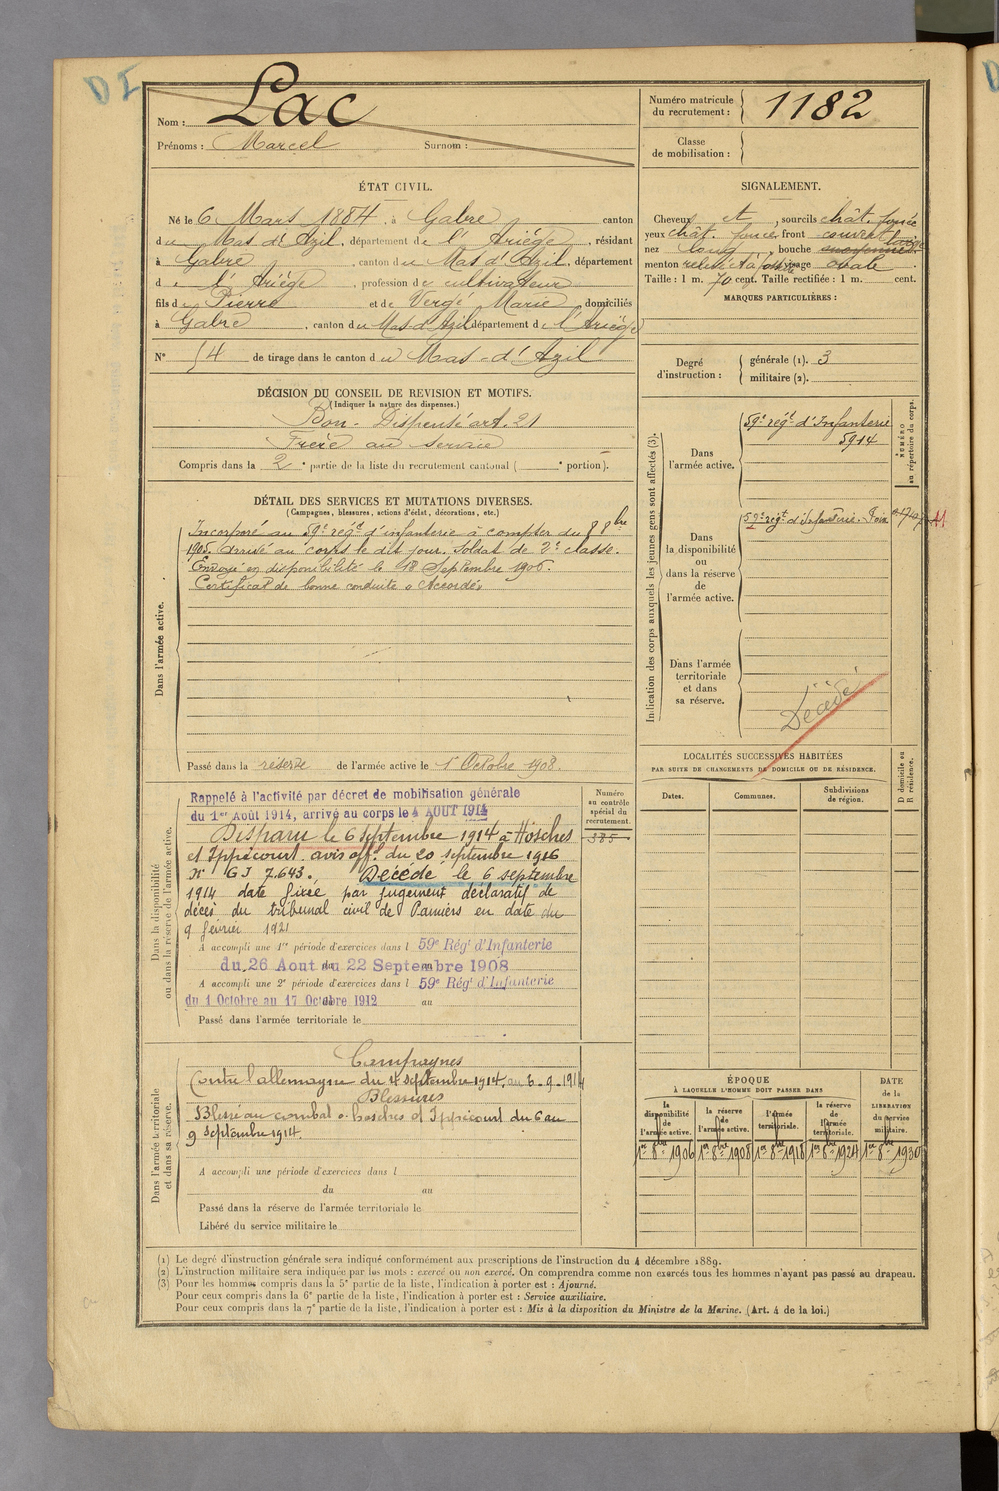 DI
Nom : Lac
Prénoms : Marcel Surnom :
Numéro matricule du recrutement : 1182
Classe de mobilisation :
ÉTAT CIVIL.
Né le 6 Mars 1884, à Gabre canton
du Mas d'Azil, département de l'Ariège, résidant
à Gabre, canton du Mas d'Azil, département
de l'Ariège, profession de cultivateur
fils de Pierre et de Vergé Marie, domiciliés
à Gabre, canton du Mas-d'Azil département de l'Ariège
N° 54 de tirage dans le canton du Mas-d'Azil
SIGNALEMENT.
Cheveux et, sourcils chât. foncé
yeux chât. foncé front couvert large
nez long, bouche moyenne
menton visage ovale
Taille : 1 m. 70 cent. Taille rectifiée : 1 m. cent.
MARQUES PARTICULIÈRES :
Degré d'instruction :
générale (1). 3
militaire (2).
DÉCISION DU CONSEIL DE REVISION ET MOTIFS.
(Indiquer la nature des dispenses.)
Bon - Dispensé art. 21
Frère au service
Compris dans la 2e partie de la liste du recrutement cantonal ( e portion).
DÉTAIL DES SERVICES ET MUTATIONS DIVERSES.
(Campagnes, blessures, actions d'éclat, décorations, etc.)
Dans l'armée active.
Incorporé au 59e régt d'infanterie à compter du 8 8bre
1905. arrivé au corps le dit jour. Soldat de 2e classe.
Envoyé en disponibilité le 18 Septembre 1906.
Certificat de bonne conduite « Accordé »
Passé dans la réserve de l'armée active le 1er Octobre 1908.
Indication des corps auxquels les jeunes gens sont affectés (3).
NUMÉRO au répertoire du corps.
Dans l'armée active.
59e régt d'Infanterie
5914
Dans la disponibilité ou dans la réserve de l'armée active.
59e régt d'Infanterie. Foix
Dans l'armée territoriale et dans sa réserve.
Décédé
LOCALITÉS SUCCESSIVES HABITÉES
PAR SUITE DE CHANGEMENTS DE DOMICILE OU DE RÉSIDENCE.
Dates. Communes. Subdivisions de région. D domicile ou R résidence.
Dans la disponibilité ou dans la réserve de l'armée active.
Numéro au contrôle spécial du recrutement.
385
Rappelé à l'activité par décret de mobilisation générale
du 1er Août 1914, arrivé au corps le 4 AOUT 1914
Disparu le 6 septembre 1914 à Hosches
et Ippécourt avis offl. du 20 septembre 1916
N° GJ 7.643. Décédé le 6 septembre
1914 date fixée par jugement déclaratif de
décès du tribunal civil de Pamiers en date du
9 février 1921
A accompli une 1re période d'exercices dans l 59e Régt d'Infanterie
du 26 Aout au 22 Septembre 1908
A accompli une 2e période d'exercices dans l 59e Régt d'Infanterie
du 1 Octobre au 17 Octobre 1912 au
Passé dans l'armée territoriale le
Dans l'armée territoriale et dans sa réserve.
Campagnes
Contre l'allemagne du 4 septembre 1914, au 6-9-1914
Blessures
Blessé au combat à hosches et Ippécourt du 6 au
9 septembre 1914.
A accompli une période d'exercices dans l
du au
Passé dans la réserve de l'armée territoriale le
Libéré du service militaire le
ÉPOQUE
À LAQUELLE L'HOMME DOIT PASSER DANS
la disponibilité de l'armée active. la réserve de l'armée active. l'armée territoriale. la réserve de l'armée territoriale. DATE de la LIBÉRATION du service militaire.
1er 8bre 1906 1er 8bre 1908 1er 8bre 1918 1er 8bre 1924 1er 8bre 1930
(1) Le degré d'instruction générale sera indiqué conformément aux prescriptions de l'instruction du 4 décembre 1889.
(2) L'instruction militaire sera indiquée par les mots : exercé ou non exercé. On comprendra comme non exercés tous les hommes n'ayant pas passé au drapeau.
(3) Pour les hommes compris dans la 5e partie de la liste, l'indication à porter est : Ajourné.
Pour ceux compris dans la 6e partie de la liste, l'indication à porter est : Service auxiliaire.
Pour ceux compris dans la 7e partie de la liste, l'indication à porter est : Mis à la disposition du Ministre de la Marine. (Art. 4 de la loi.)